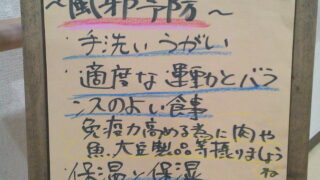 ～風邪予防～
・手洗いうがい
・適度な運動とバラ
ンスのよい食事
免疫力高める為に肉や
魚、大豆製品等摂りましょう
ね
・保温と保湿